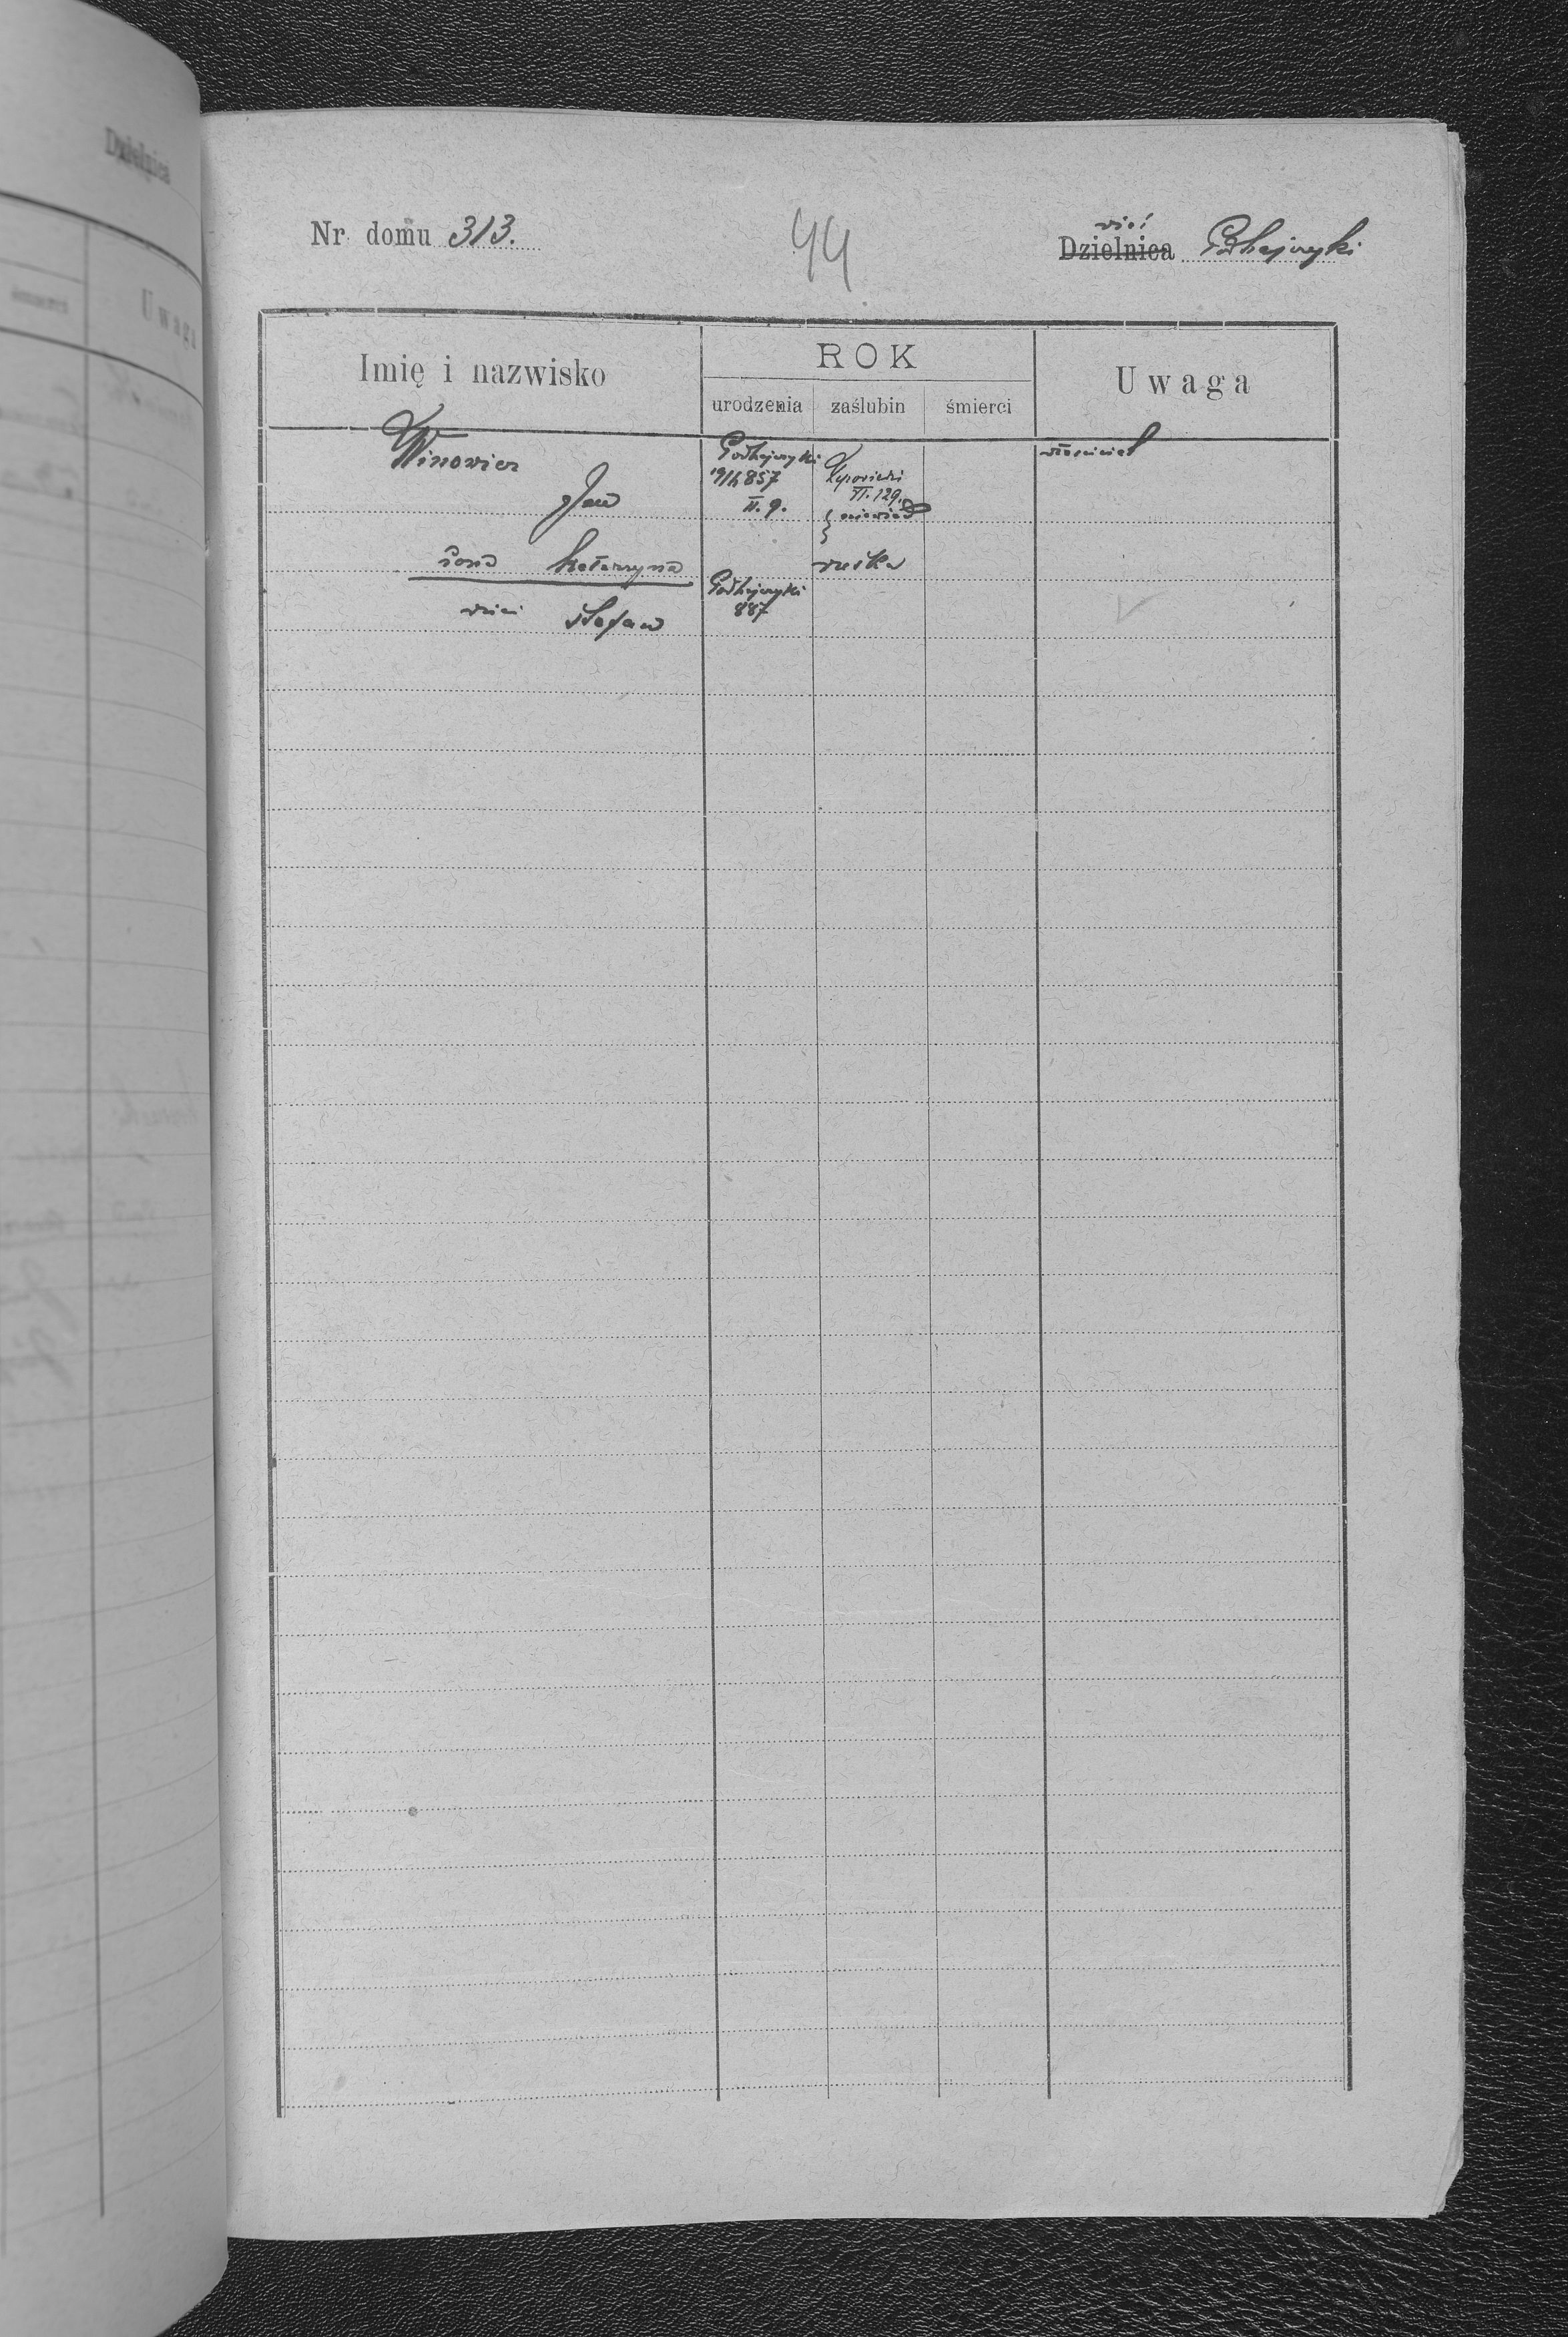 Nr domu 313.
44
wieś
Dzielnica Podhajczyki
Imię i nazwisko
ROK
urodzenia zaślubin śmierci
Uwaga
Winowicz
Jan
Podhajczyki
19/4 857
II. 9.
VI. 129.
niewiad
właściciel
żona Katarzyna
ruska
dzieci Stefan
Podhajczyki
887
Dzielnica
śmierci
Uwaga